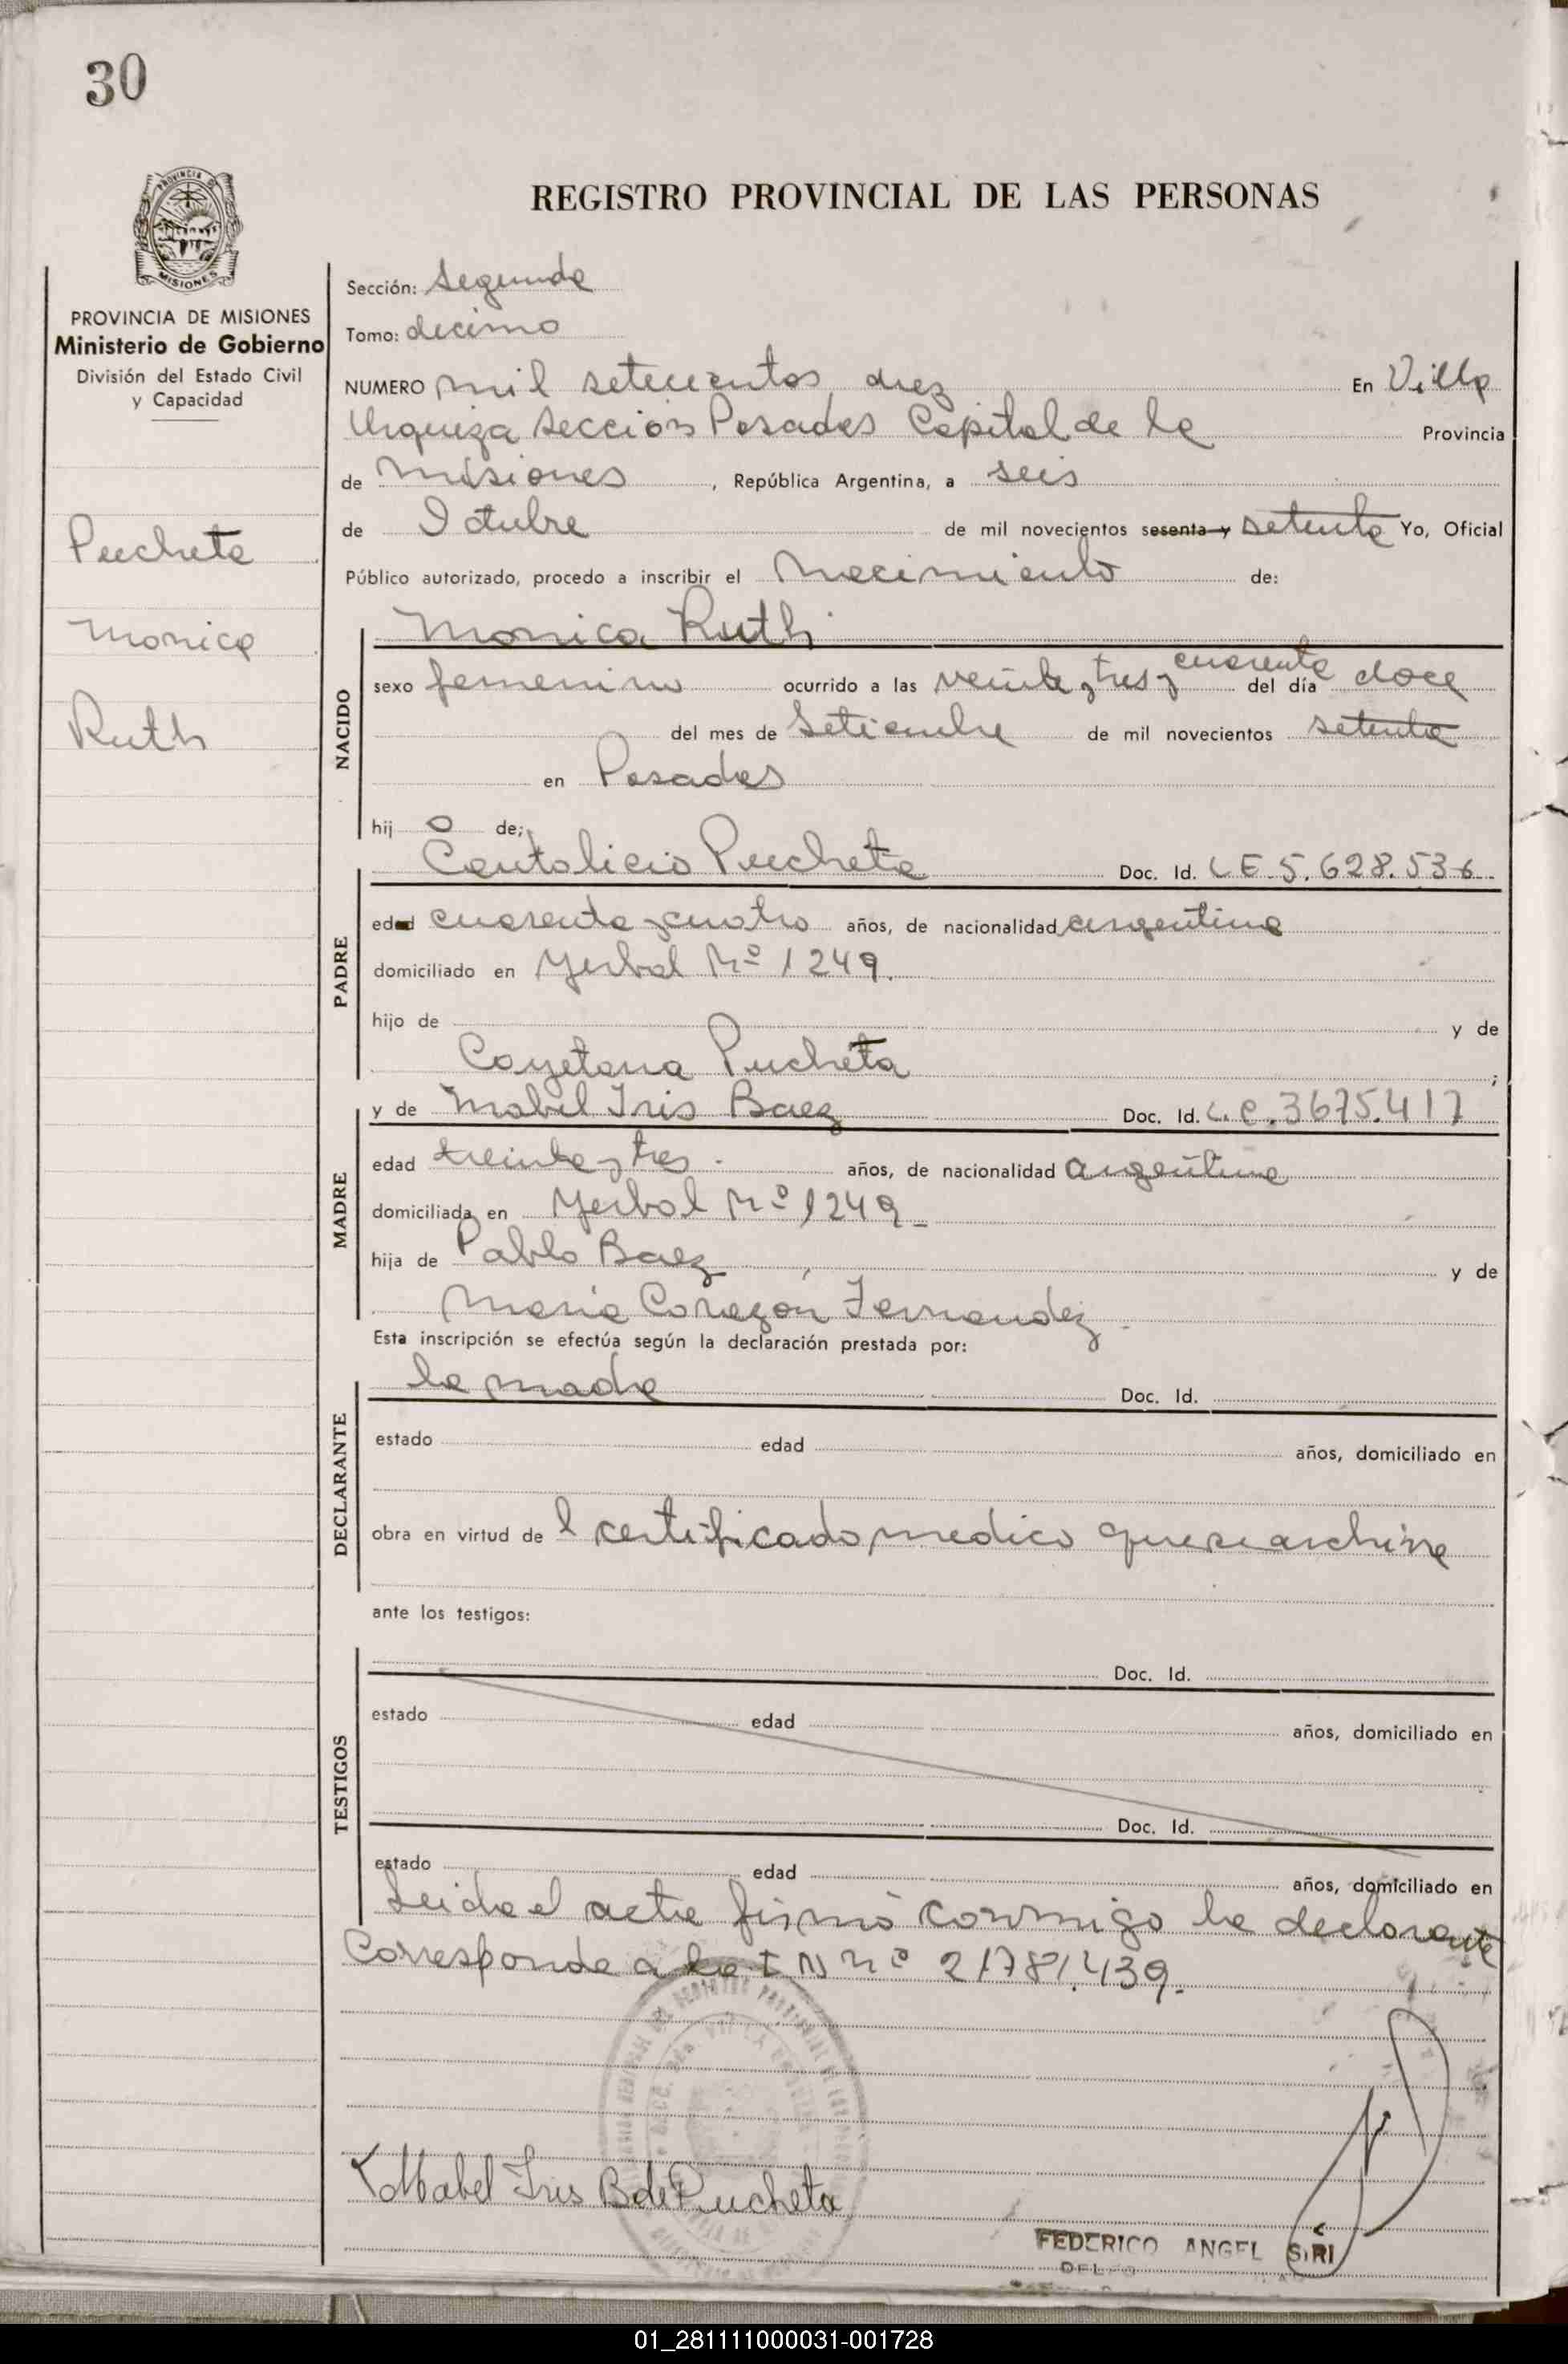 30
REGISTRO PROVINCIAL DE LAS PERSONAS
PROVINCIA DE MISIONES
Ministerio de Gobierno
División del Estado Civil
y Capacidad
Pucheta
Monica
Ruth
Sección: Segunda
Tomo: decimo
NUMERO mil setecientos diez En Villa
Urquiza Sección Posadas Capital de la Provincia
de Misiones, República Argentina, a seis
de Octubre de mil novecientos sesenta y setenta Yo, Oficial
Público autorizado, procedo a inscribir el Nacimiento de:
Monica Ruth
NACIDO
sexo femenino ocurrido a las veinte y tres y cuarenta del día doce
del mes de Setiembre de mil novecientos setenta
en Posadas
hij o de;
PADRE
Cantalicio Pucheta Doc. Id. L E 5.628.536
edad cuarenta y cuatro años, de nacionalidad argentina
domiciliado en Yerbal Nº 1249.
hijo de y de
Cayetana Pucheta;
MADRE
y de Mabel Iris Baez Doc. Id. L.C. 3675.417
edad treinta y tres. años, de nacionalidad argentina
domiciliada en Yerbal Nº 1249_
hija de Pablo Baez y de
Maria Corazón Fernandez.
Esta inscripción se efectúa según la declaración prestada por:
DECLARANTE
la madre Doc. Id.
estado edad años, domiciliado en
obra en virtud de l certificado medico que se archiva
ante los testigos:
TESTIGOS
Doc. Id.
estado edad años, domiciliado en
Doc. Id.
estado edad años, domiciliado en
Leida el acta firmó conmigo la declarante
Corresponde a la I N nº 21781.439.
Mabel Iris B de Pucheta
FEDERICO ANGEL SIRI
01_281111000031-001728